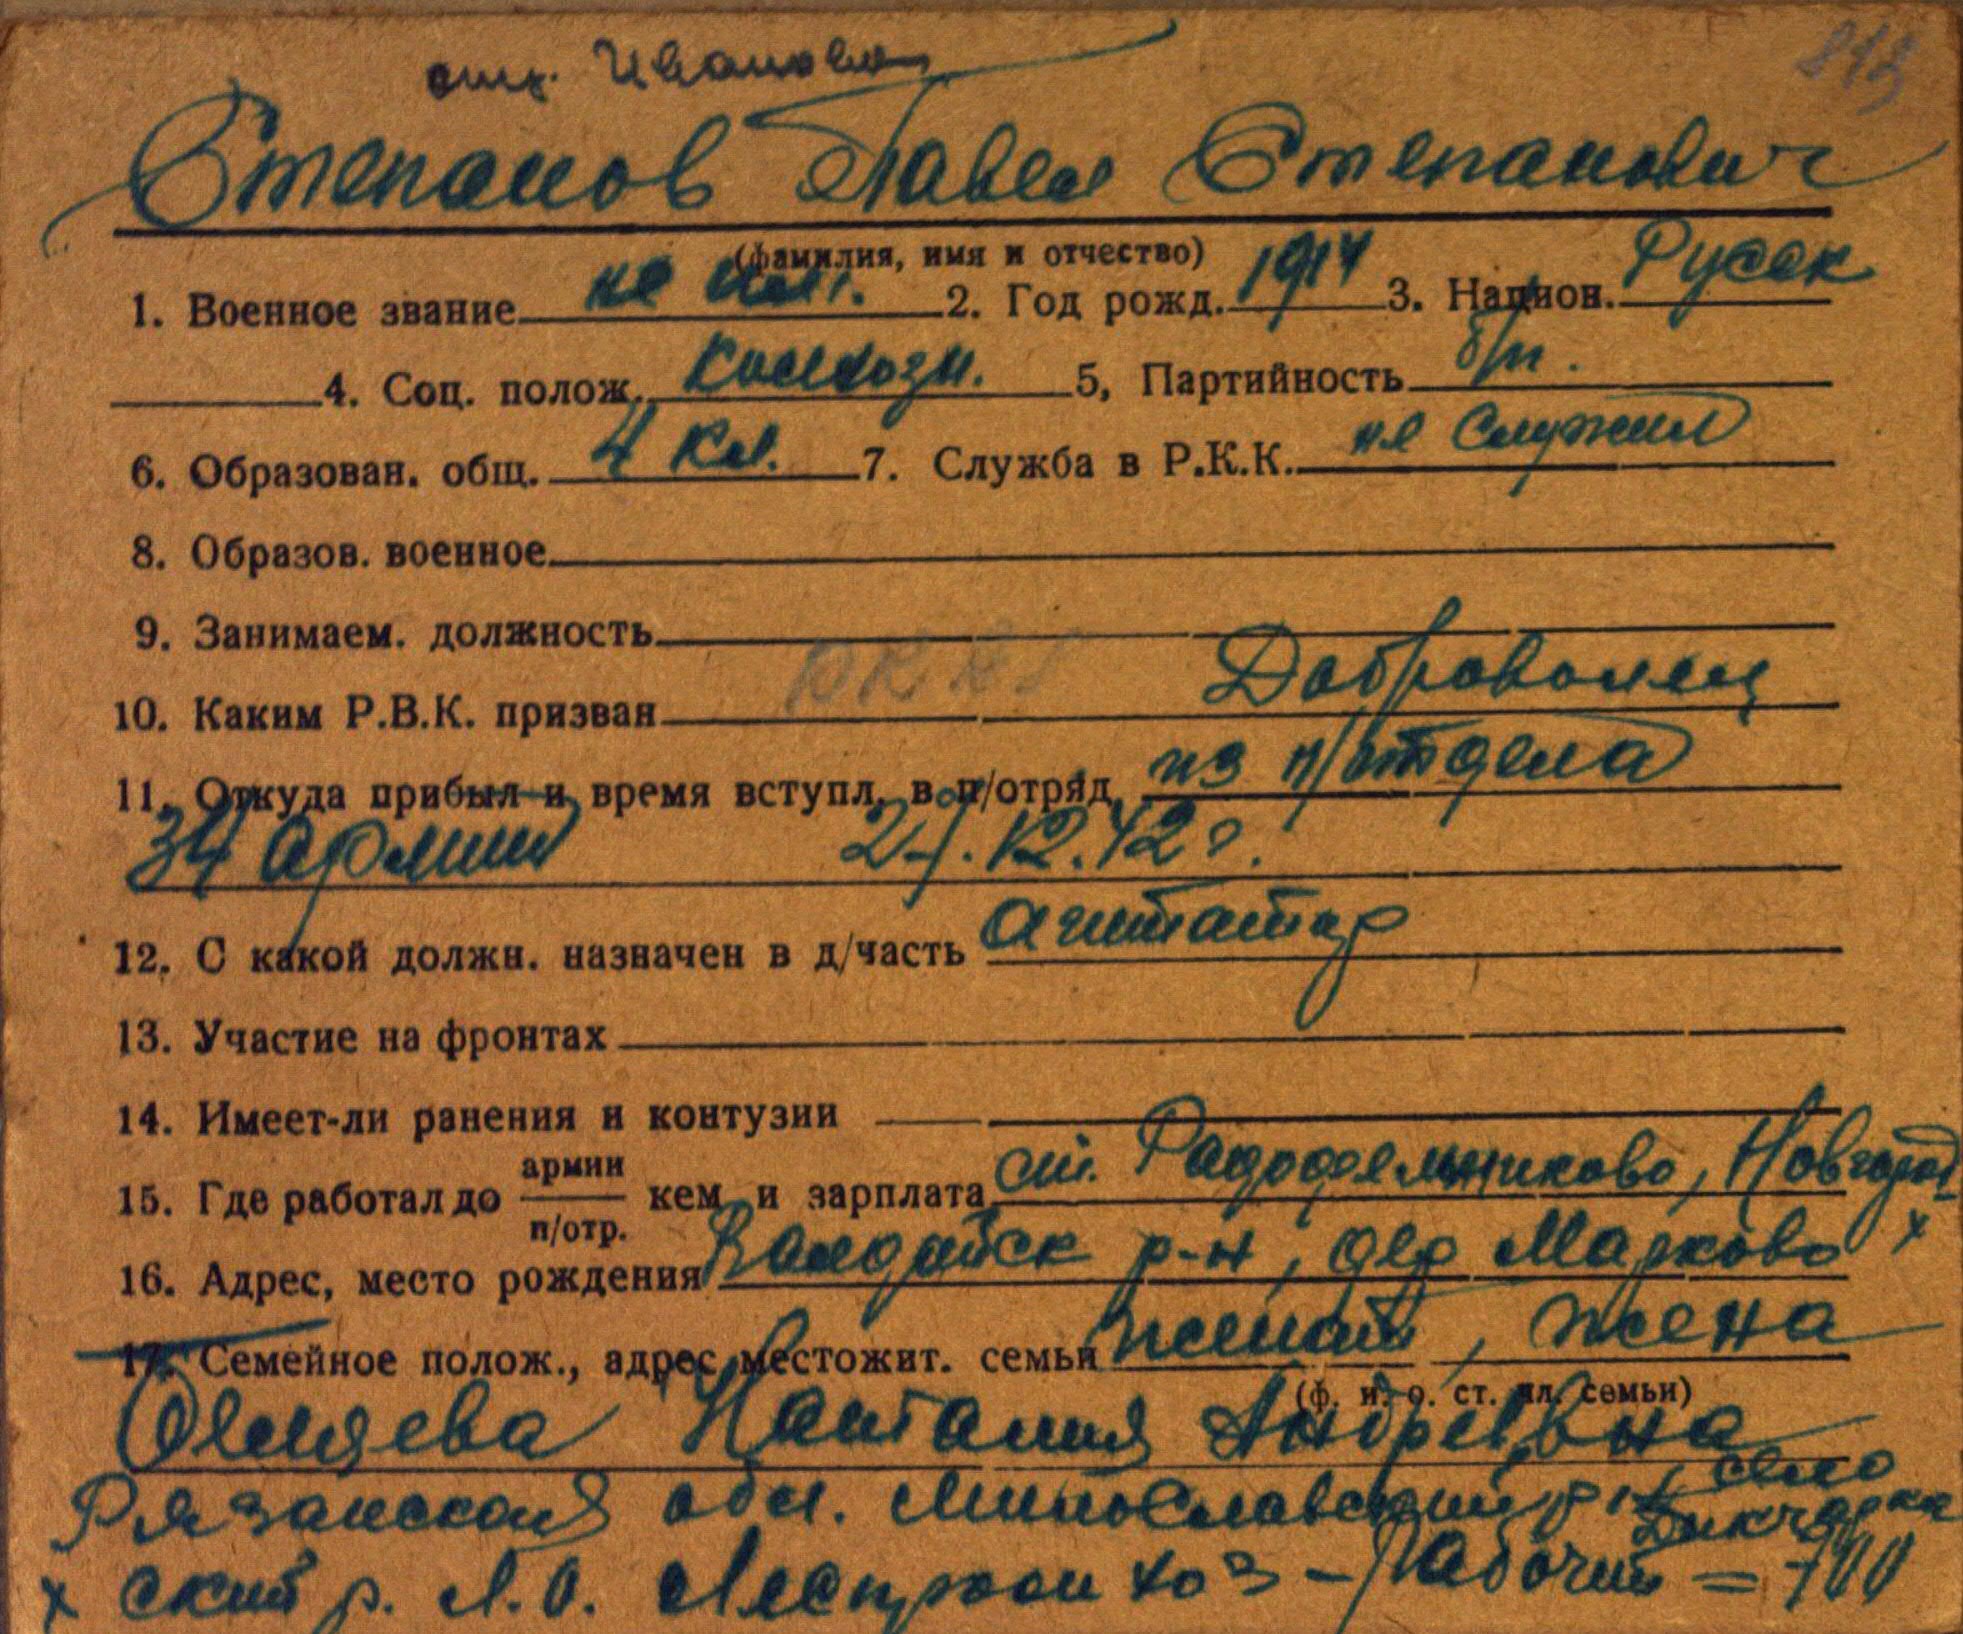 813
Степанов Павел Степанович
(фамилия, имя и отчество)
1. Военное звание не им. 2. Год рожд. 1914 3. Национ. Русск
4. Соц. полож. колхозн. 5, Партийность б/п.
6. Образован. общ. 4 кл. 7. Служба в Р.К.К. не служил
8. Образов. военное
9. Занимаем. должность
10. Каким Р.В.К. призван Доброволец
11. Откуда прибыл и время вступл. в п/отряд из п/отдела
34 армии 27.12.42 г.
12. С какой должн. назначен в д/часть агитатор
13. Участие на фронтах
14. Имеет-ли ранения и контузии
15. Где работал до армии/п/отр. кем и зарплата ст. Новгород х
16. Адрес, место рождения Валдайск р-н, дер Марково
17. Семейное полож., адрес местожит. семьи женат, жена
(ф. и. о. ст. чл. семьи)
Наталия Андреевна
Рязанская обл. Милославский р-н, село
х ский р. Л.О. Леспромхоз – Рабочий = 700